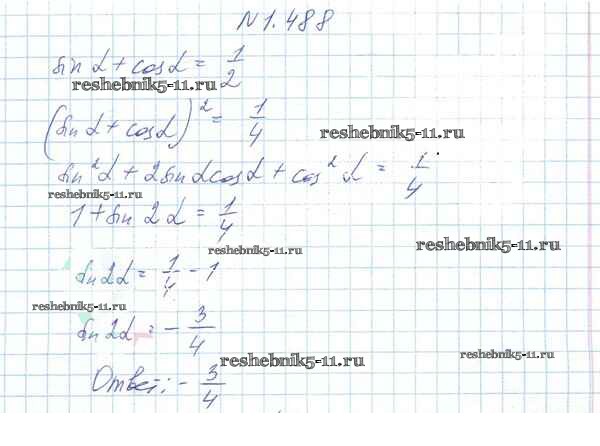 N 1.488
sin α + cos α = 1/2
reshebnik5-11.ru
(sin α + cos α)² = 1/4
reshebnik5-11.ru
sin² α + 2 sin α cos α + cos² α = 1/4
reshebnik5-11.ru
1 + sin 2α = 1/4
reshebnik5-11.ru
reshebnik5-11.ru
sin 2α = 1/4 - 1
reshebnik5-11.ru
sin 2α = - 3/4
reshebnik5-11.ru
reshebnik5-11.ru
Ответ: - 3/4